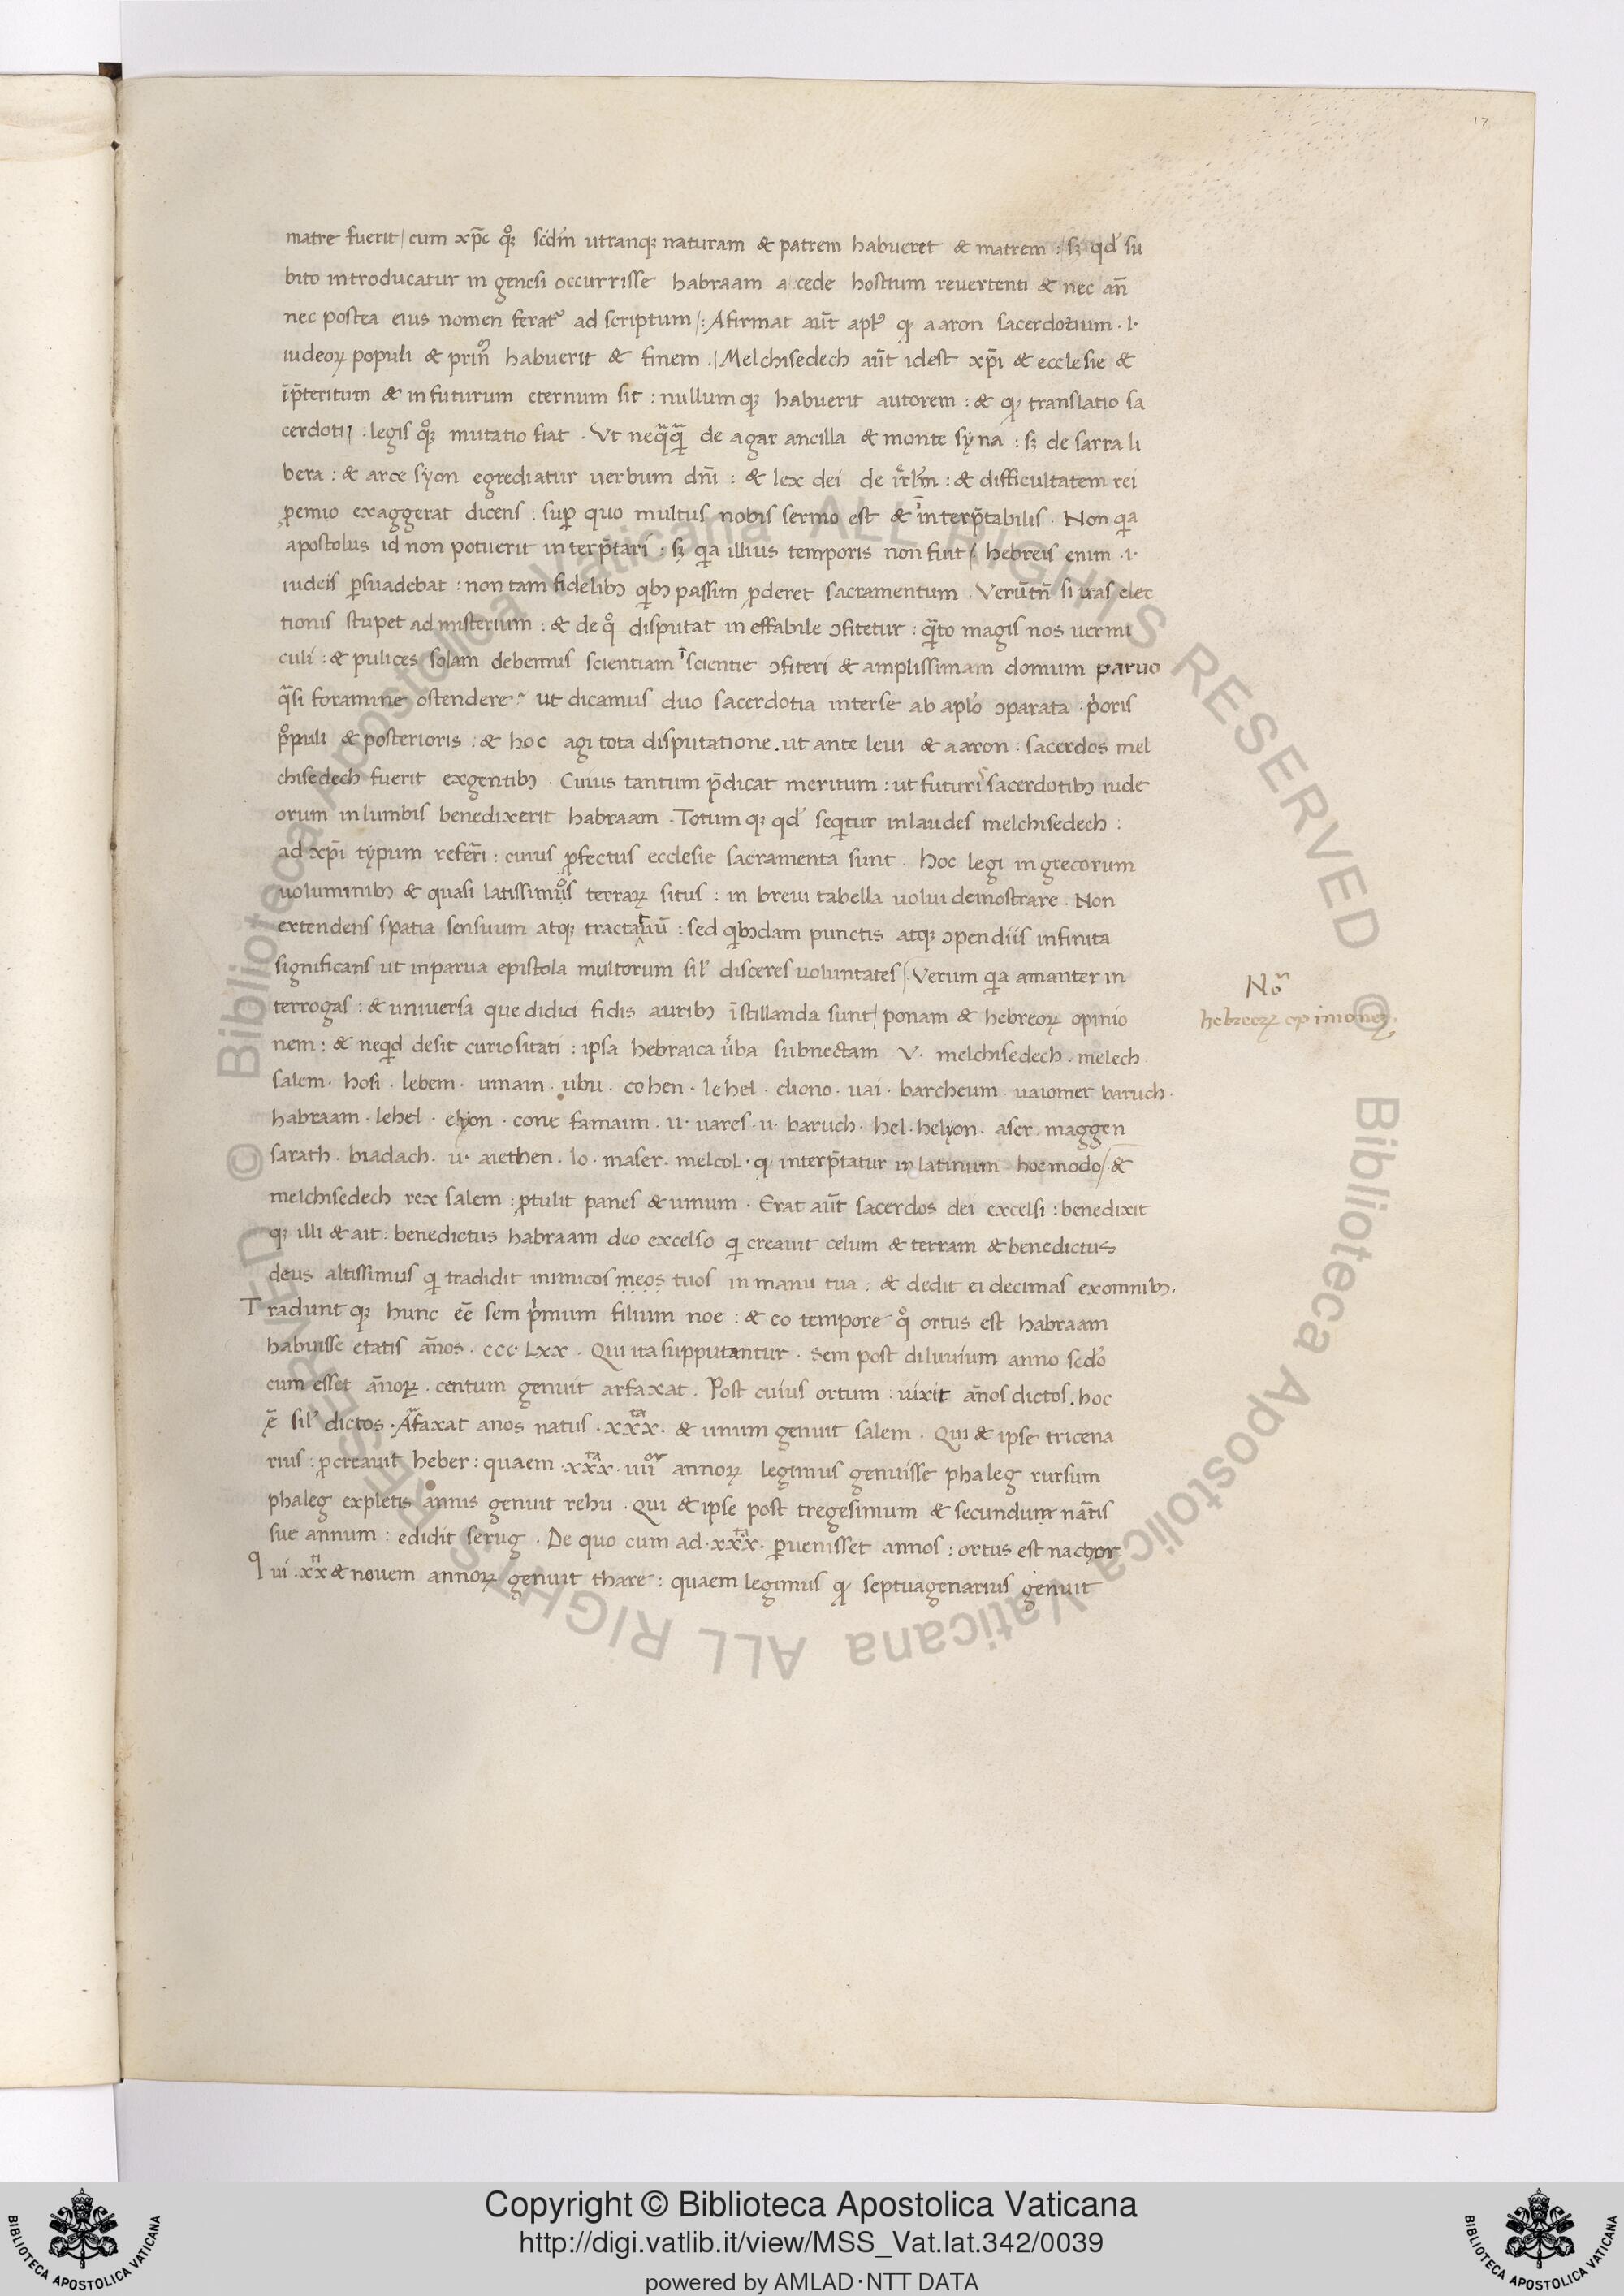 17
matre fuerit / cum xp̄c qͦꝫ scd̄m utranqꝫ naturam & patrem habueret & matrem : sꝫ qd̓ su
bito introducatur in genesi occurrisse habraam a cede hostium reuertenti & nec an̄
nec postea eius nomen ferat᷒ ad scriptum /: Afirmat aūt apl̓s ꝙ aaron sacerdotium . i.
iudeoꝝ populi & prin̄ habuerit & finem . / Melchisedech aūt idest xp̄i & ecclesie &
īp̄teritum & in futurum eternum sit : nullum qꝫ habuerit autorem : & ꝙ translatio sa
cerdotij : legis qͦꝫ mutatio fiat . Ut neq̄q̄ de agar ancilla & monte syna : sꝫ de sarra li
bera : & arce syon egrediatur uerbum dn̄i : & lex dei de ir̄lm̄ : & difficultatem rei
ꝓemio exaggerat dicens : suꝑ quo multus nobis sermo est & īinterp̄tabilis . Non qͥa
apostolus id non potuerit interp̄tari : sꝫ qͥa illius temporis non fuit / hebreis enim . i.
iudeis ꝑsuadebat : non tam fidelibꝫ qͥbꝫ passim ꝓderet sacramentum . Verūtn̄ si uas elec
tionis stupet ad misterium : & de qͦ disputat in effabile ↄfitetur : qͣ̄to magis nos uermi
culi : & pulices solam debemus scientiam īscientie ↄfiteri & amplissimam domum paruo
qͣsi foramine ostendere . ut dicamus duo sacerdotia interse ab aplo̓ ↄparata : pͥoris
pͦpuli & posterioris : & hoc agi tota disputatione . ut ante leui & aaron : sacerdos mel
chisedech fuerit exgentibꝫ . Cuius tantum p̄dicat meritum : ut futuriˢ sacerdotibꝫ iude
orum inlumbis benedixerit habraam . Totum qꝫ qd̓ seqͥtur inlaudes melchisedech :
ad xp̄i typum refer̄i : cuius ꝓfectus ecclesie sacramenta sunt . hoc legi in grecorum
uoluminibꝫ & quasi latissimuͦs terraꝝ situs : in breui tabella uolui demostrare . Non
extendens spatia sensuum atqꝫ tractatuū : sed qͥbꝫdam punctis atqꝫ ↄpendiis infinita
significans ut inparua epistola multorum sil̓ disceres uoluntates / . Verum qͥa amanter in
terrogas : & uniuersa que didici fidis auribꝫ īstillanda sunt / ponam & hebreoꝝ opinio
nem : & neqͥd desit curiositati : ipsa hebraica u̓ba subnectam V . melchisedech . melech
salem . hosi . lebem . umain . ubu . cohen . lehel . eliono . uai . barcheum . uaiomer baruch .
habraam . lehel . elyon . cone samaim . u . uares . u . baruch . hel . helyon . aser . maggen
sarath . biadach . u . aiethen . lo . maser . melcol . ꝙ interp̄tatur in latinum hoc modo / . &
melchisedech rex salem : ꝓtulit panes & uinum . Erat aūt sacerdos dei excelsi : benedixit
qꝫ illi & ait : benedictus habraam deo excelso qͥ creauit celum & terram & benedictus
deus altissimus qͥ tradidit inimicos meos tuos in manu tua : & dedit ei decimas exomnibꝫ .
Tradunt qꝫ hunc eē sem pͥmum filium noe : & eo tempore qͦ ortus est habraam
habuisse etatis an̄os . ccc . Lxx . Qui ita supputantur . Sem post diluuium anno scdo̓
cum esset an̄oꝝ . centum genuit arfaxat . Post cuius ortum : uixit an̄os dictos . hoc
ē sil̓ dictos . Arfaxat anos natus . xxxᵗᵃ . & unum genuit salem . Qui & ipse tricena
rius : ꝓcreauit heber : quaem . xxxᵗᵃ . uuºʳ annoꝝ legimus genuisse phaleg rursum
phaleg expletis annis genuit rehu . Qui & ipse post tregesimum & secundum nat̄is
sue annum : edidit serug . De quo cum ad . xxxᵗᵃ . ꝑuenisset annos : ortus est nachor
qui . xx & nouem annoꝝ genuit thare : quaem legimus ꝙ septuagenarius genuit
Noͣ
hebreoꝝ opinionez .
Copyright © Biblioteca Apostolica Vaticana
http://digi.vatlib.it/view/MSS_Vat.lat.342/0039
powered by AMLAD·NTT DATA
BIBLIOTECA APOSTOLICA VATICANA
BIBLIOTECA APOSTOLICA VATICANA
© Biblioteca Apostolica Vaticana ALL RIGHTS RESERVED © Biblioteca Apostolica Vaticana ALL RIGHTS RESERVED